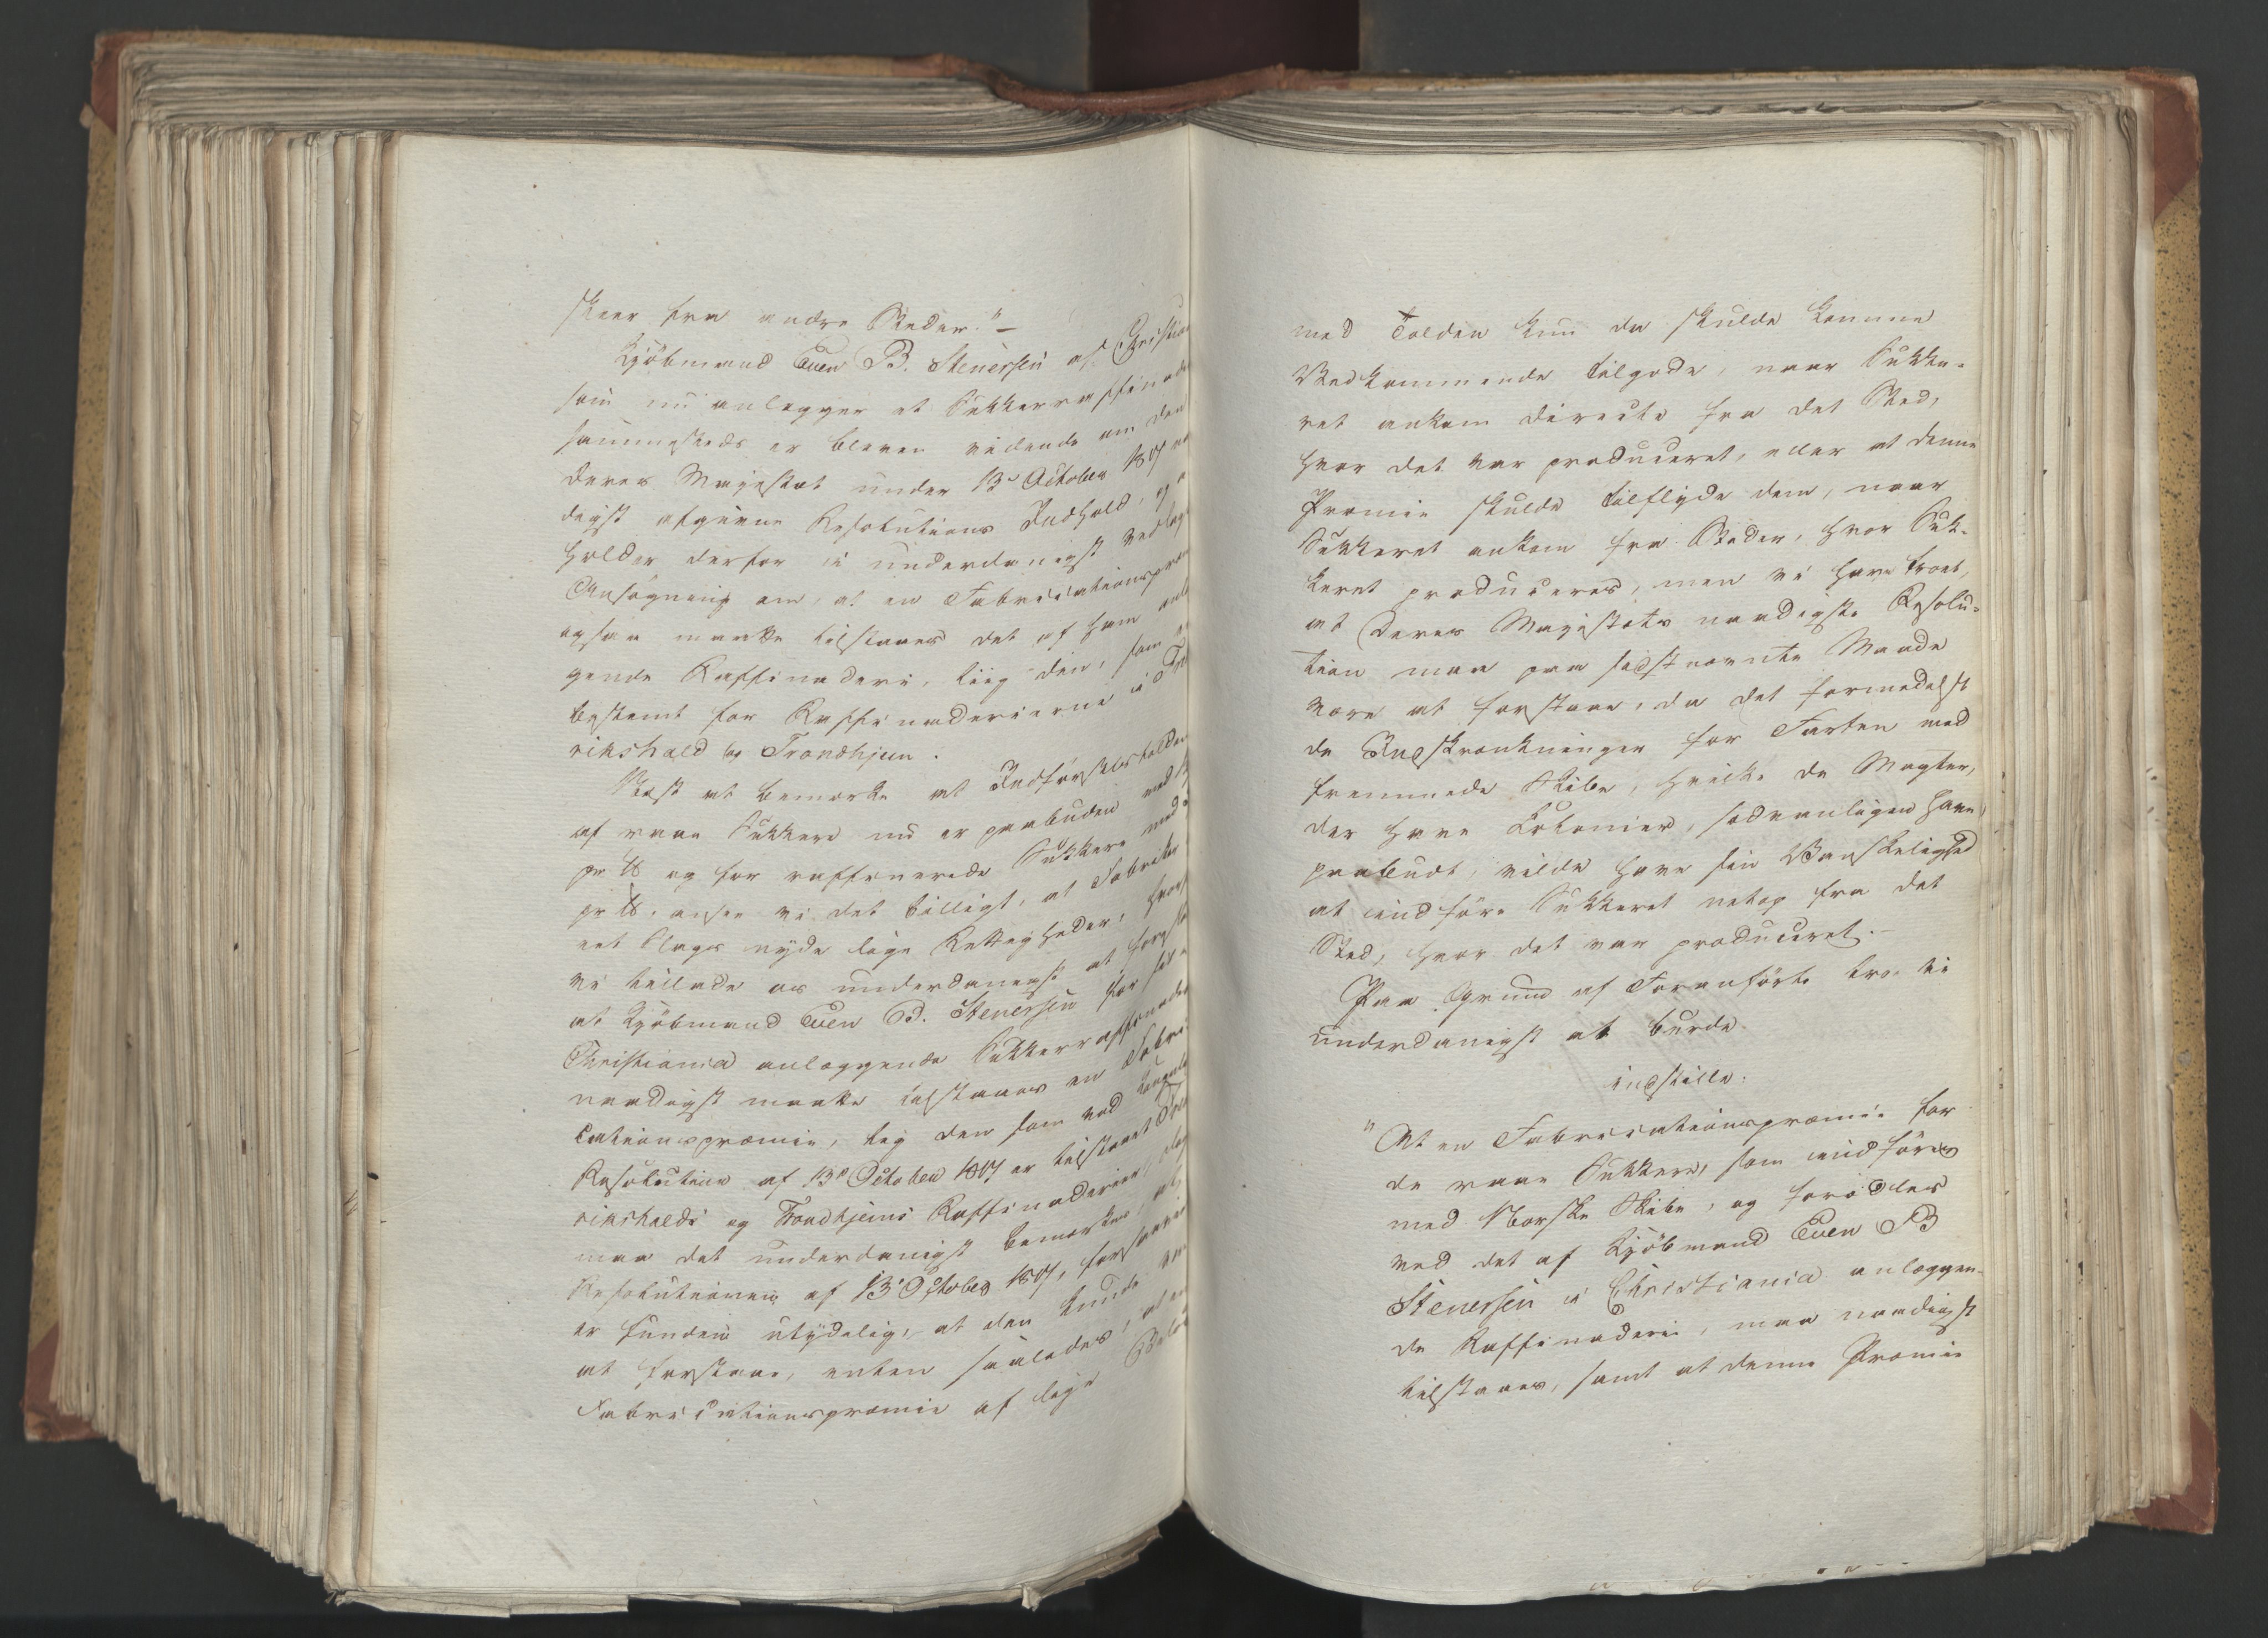 skeer fra andre Steder." –
Kjöbmand Even B. Stenersen af Christia
som nu anlægger et Sukkerraffinade
sammesteds er bleven vidende om den
Deres Majestæt under 13de October 1817 na
digst afgivne Resolutions Indhold, og a
holder derfor i underdanigst vedlag
Ansögning om, at en Fabricationspræ
ogsaa maatte tilstaaes det af ham anlæ
gende Raffinaderi, liig den, som
bestemt for Raffinaderierne i Fre
rikshald og Trondhjem.
Næst at bemærke at Indförselstolden
af raae Sukkere nu er paabuden med
pr ℔ og for raffinerede Sukkere med
pr ℔, ansee vi det billigt, at Fabriker
eet Slags nyde lige Rettigheder, hvorf
vi tillade os underdanigst at foresl
at Kjöbmand Even B. Stenersen for sit
Christiania anlæggende Sukkerraffinade
naadigst maatte tilstaaes en Fabri
cationspræmie, lig den som ved Kongeli
Resolution af 13de October 1817 er tilstaaet Fre
rikshalds og Trondhjems Raffinaderier,
maa det underdanigst bemærkes, at
Resolutionen af 13de October 1817, forsaavi
er funden utydelig, at den kunde væ
at forstaae, enten saaledes, at en
Fabricationspræmie af lige Belöb
med Tolden kun da skulde komme
Vedkommende tilgode, naar Sukke-
ret ankom directe fra det Sted,
hvor det var produceret, eller at denne
Præmie skulde tilflyde dem, naar
Sukkeret ankom fra Steder, hvor Suk-
keret produceres, men vi have troet,
at Deres Majestæts naadigste Resolu-
tion maa paa sidstnævnte Maade
være at forstaae, da det formedelst
de Indskrænkninger for Farten med
fremmede Skibe, hvilke de Magter,
der have Colonier, sædvanligen have
paabudt, vilde have sin Vanskelighed
at indföre Sukkeret netop fra det
Sted, hvor det var produceret. –
Paa Grund af Foranförte troe vi
underdanigst at burde
indstille:
"At en Fabricationspræmie for
de raae Sukkere, som indföres
med Norske Skibe, og forædles
ved det af Kjöbmand Even B
Stenersen i Christiania anlæggen-
de Raffinaderi, maa naadigst
tilstaaes, samt at denne Præmie